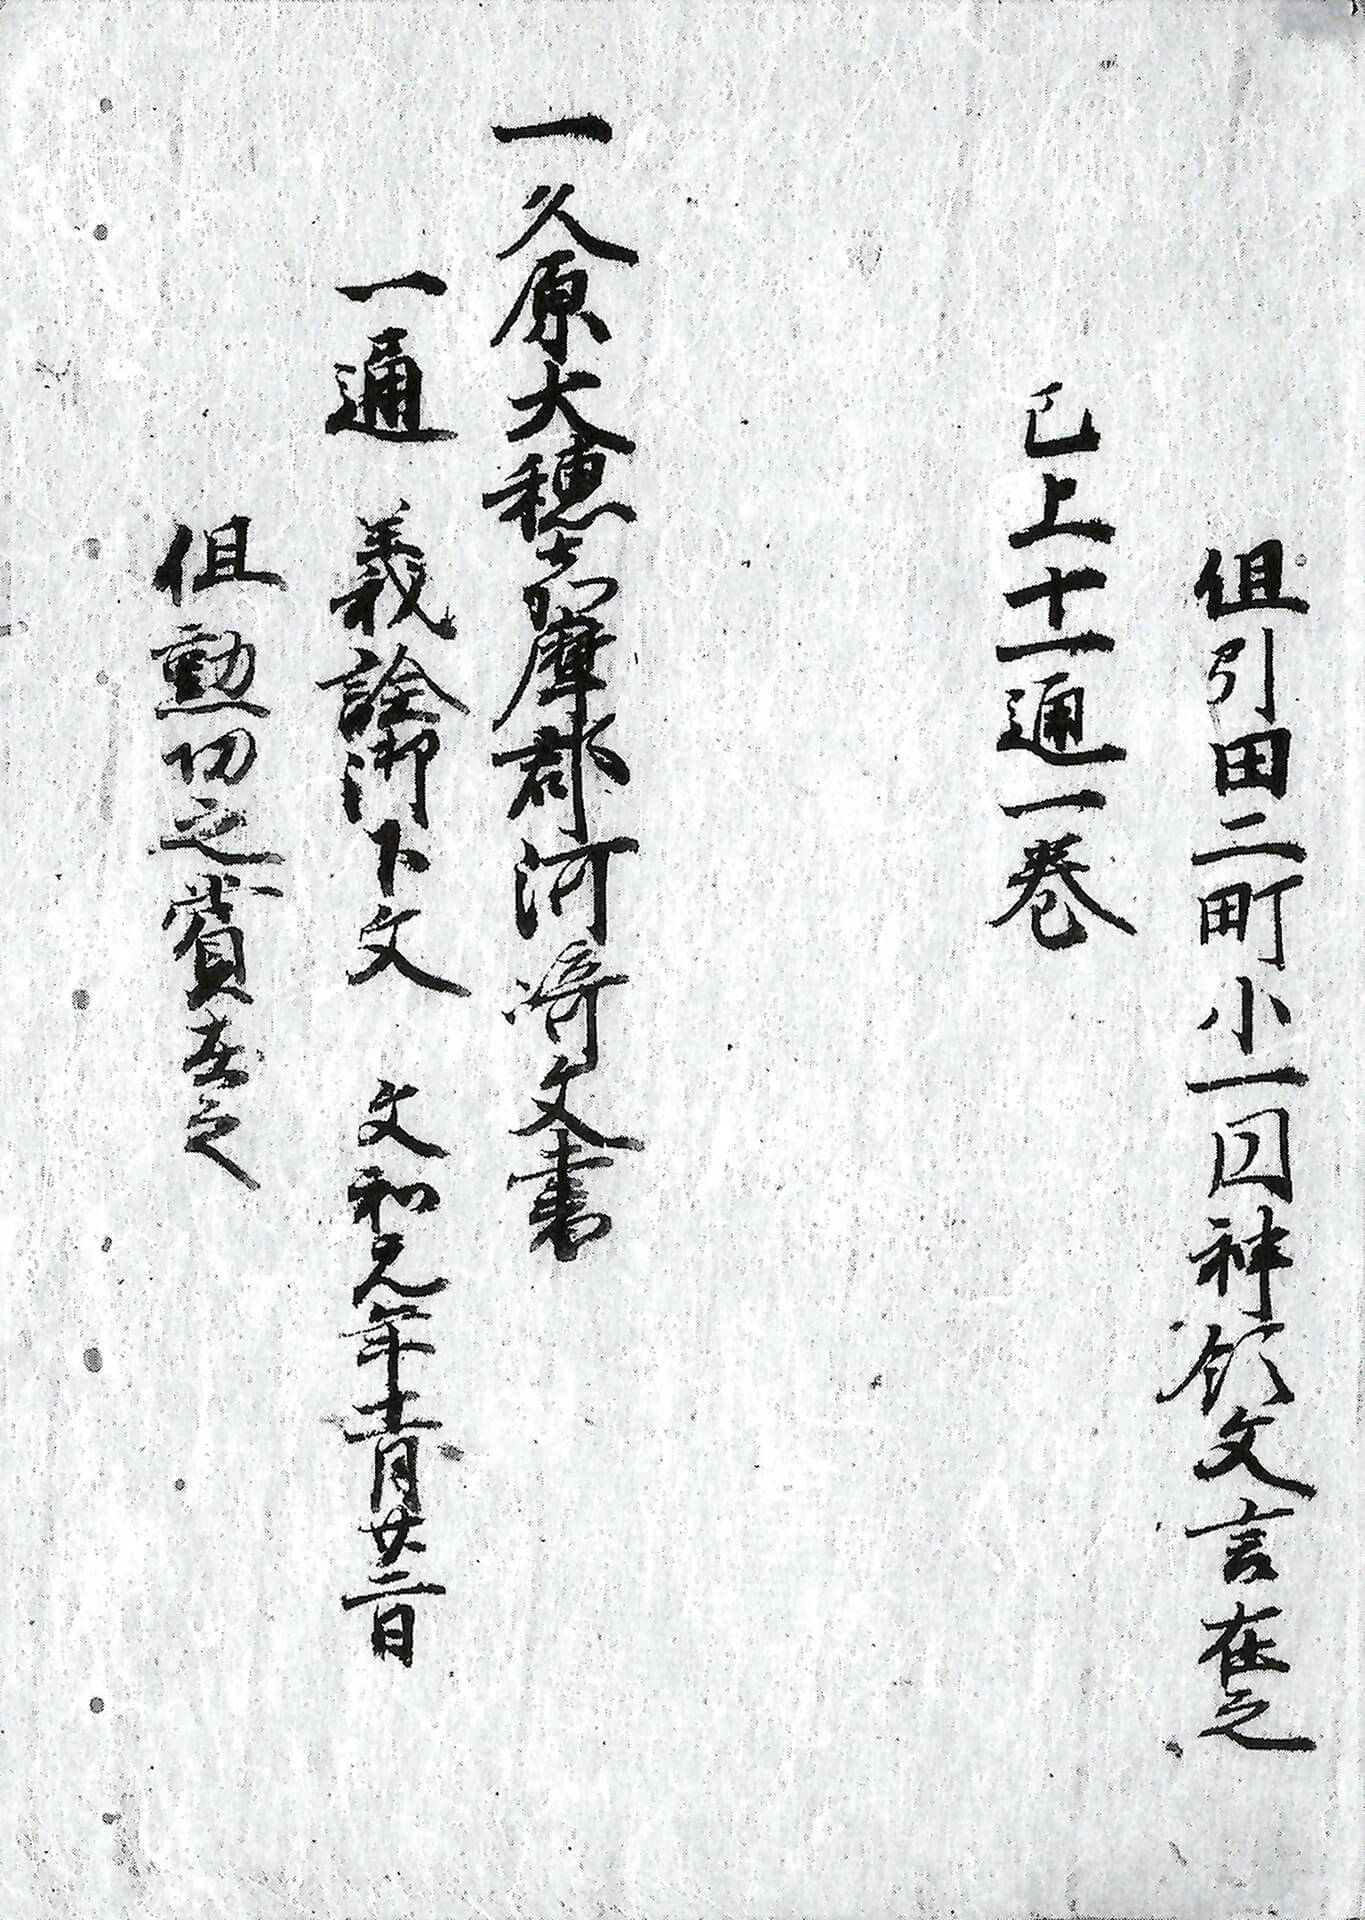 但引田二町小一円神領文言在之
已上十一通一巻
一久原大穂嘉摩郡河崎文書
一通 義詮御下文 文和元年十二月廿二日
但勲功之賞在之